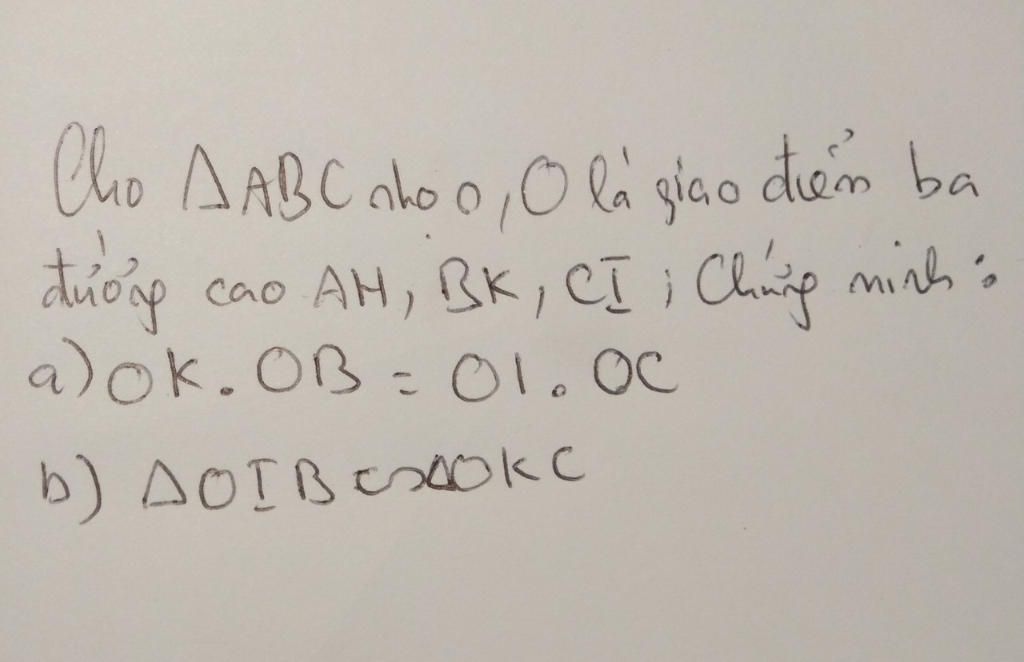 Cho ΔABC nhọn, O là giao điểm ba
đường cao AH, BK, CI; Chứng minh:
a) OK. OB = OI. OC
b) ΔOIB ∽ ΔOKC